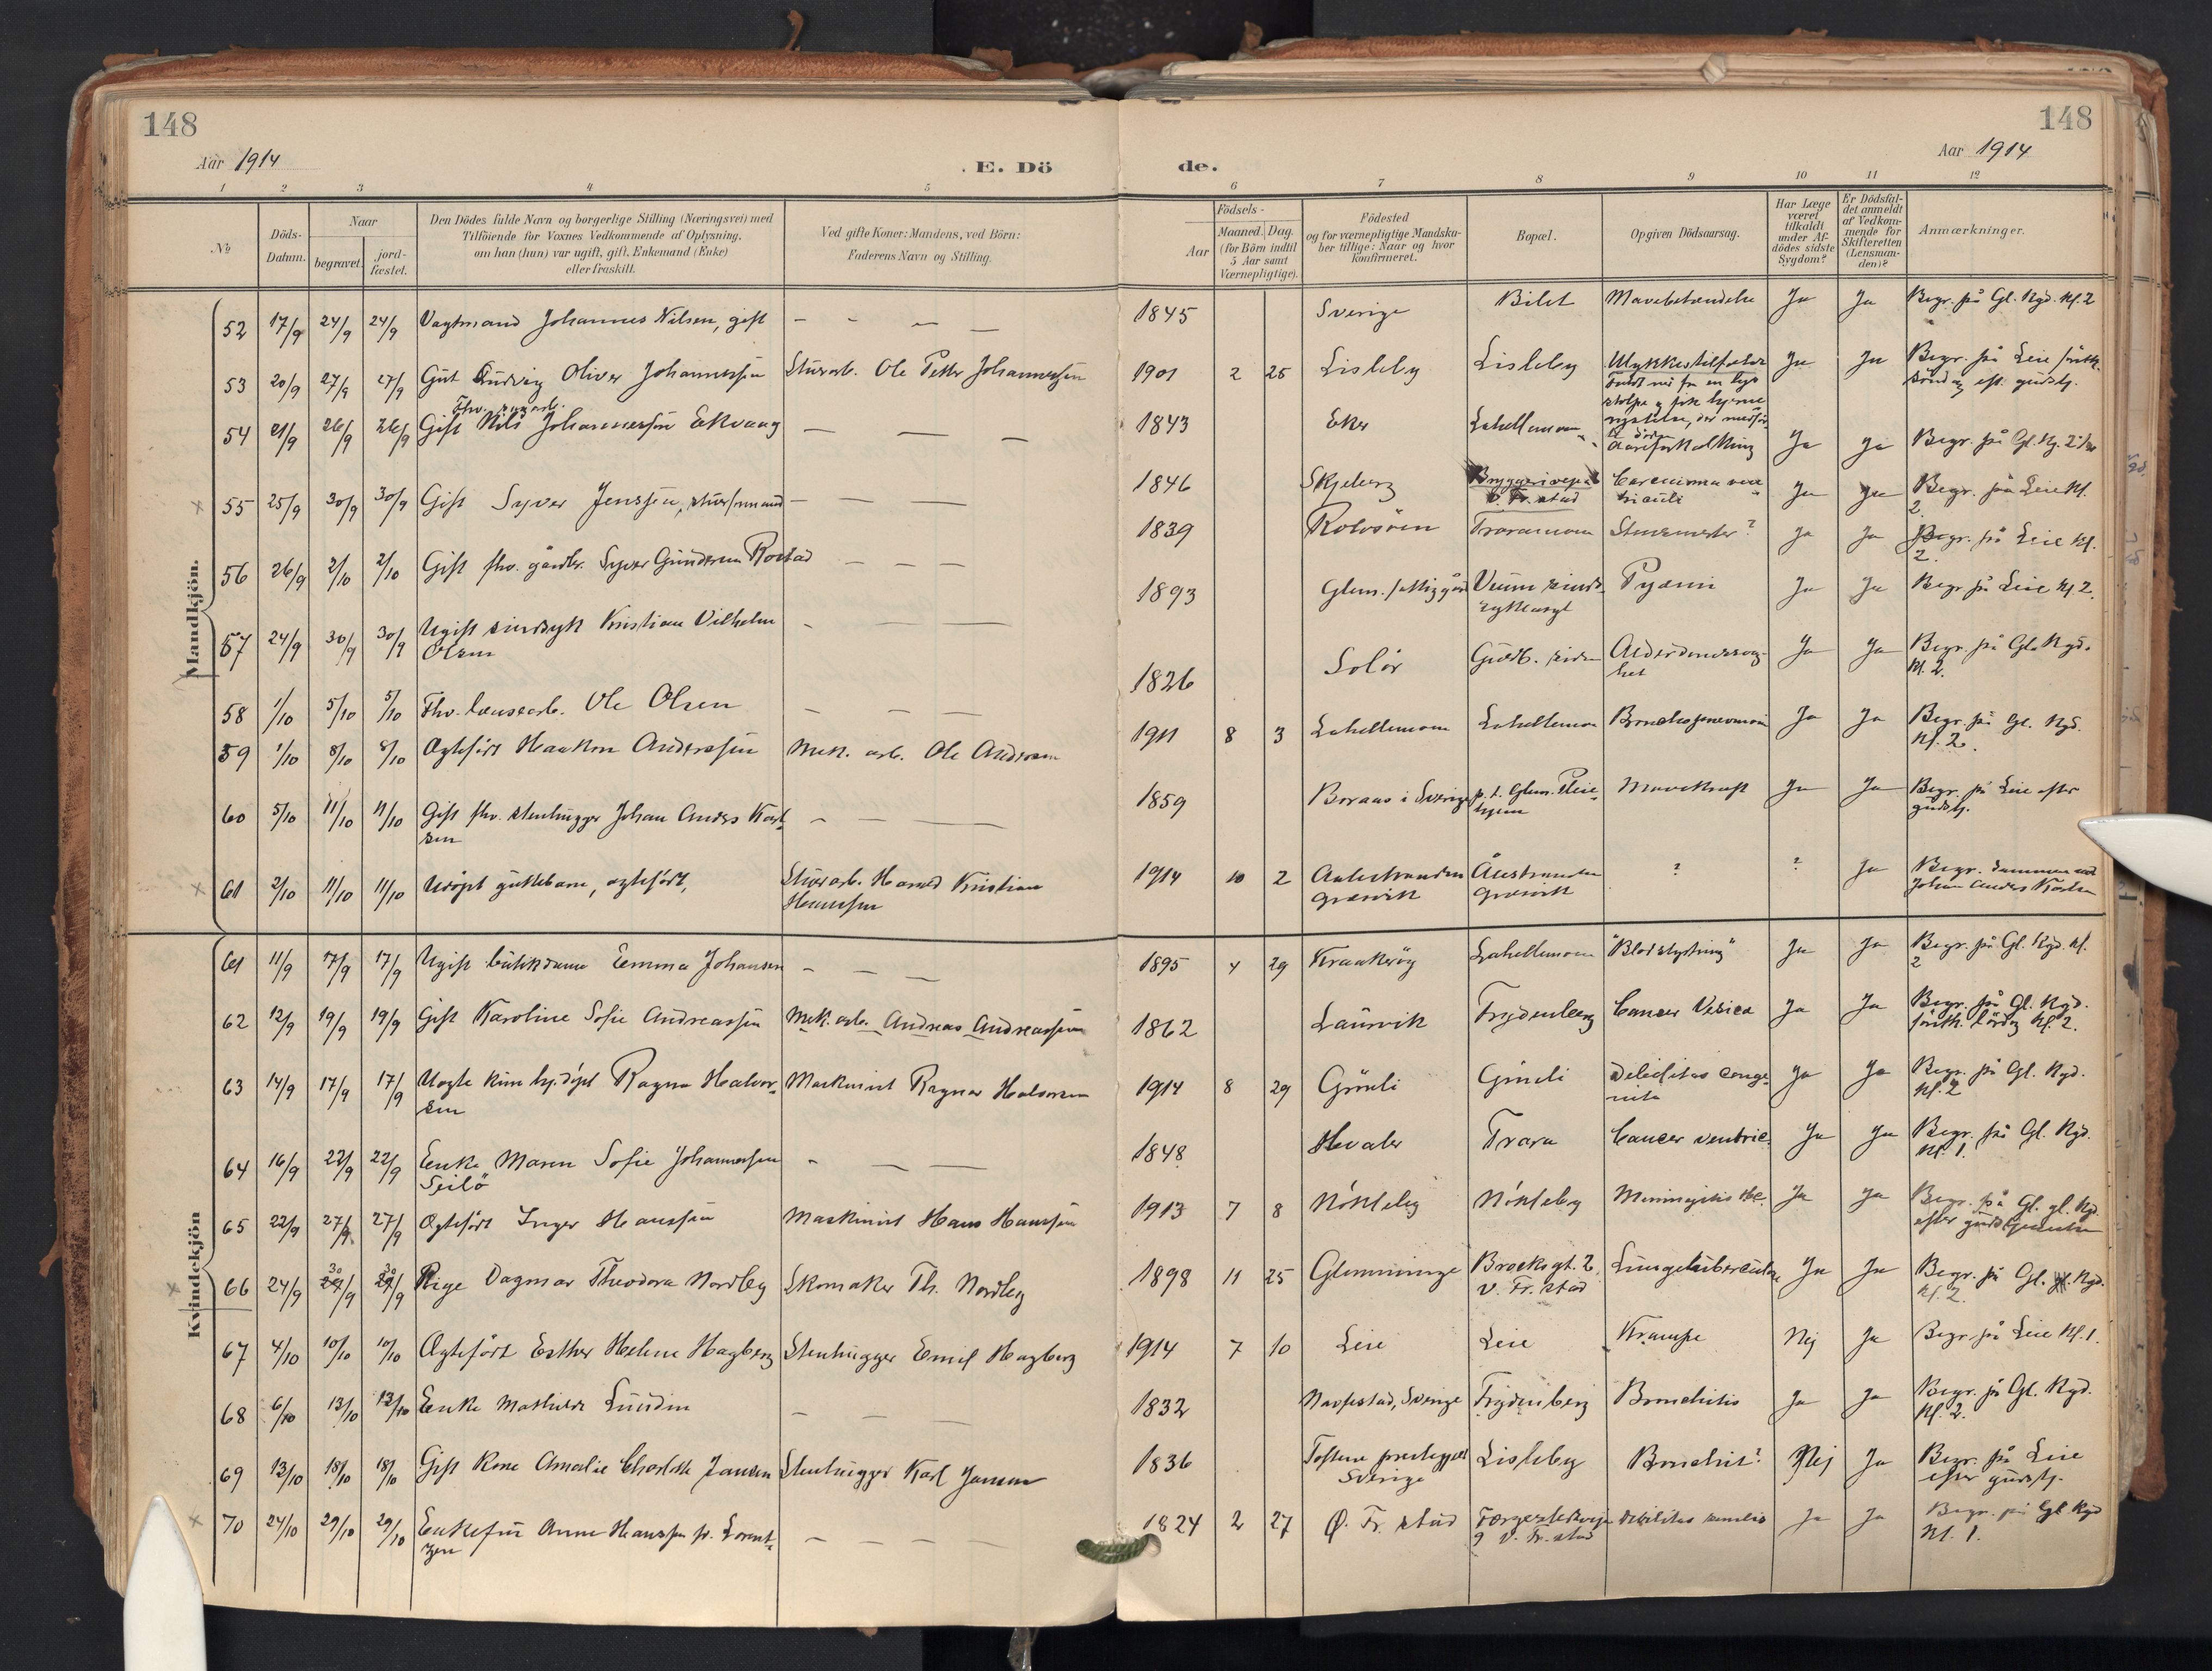 148
148
Aar 1914
. E. Dö
de.
Aar 1914
1 2 3 4 5 6 7 8 9 10 11 12
No
Döds-
Datum.
Naar
begravet. jord-
fæstet.
Den Dödes fulde Navn og borgerlige Stilling (Næringsvei) med
Tilföiende for Voxnes Vedkommende af Oplysning.
om han (hun) var ugift, gift, Enkemand (Enke)
eller fraskilt.
Ved gifte Koner: Mandens, ved Börn:
Faderens Navn og Stilling.
Födsels-
Aar Maaned. Dag.
(for Börn indtil
5 Aar samt
Værnepligtige).
Födested
og for værnepligtige Mandska-
ber tillige: Naar og hvor
konfirmeret.
Bopæl.
Opgiven Dödsaarsag.
Har Læge
været
tilkaldt
under Af-
dödes sidste
Sygdom?
Er Dödsfal-
det anmeldt
af Vedkom-
mende for
Skifteretten
(Lensman-
den)?
Anmærkninger.
Mandkjön.
52 17/9 24/9 24/9 Vagtmand Johannes Nilsen, gift — — — — 1845 Sverige Bilet Mavebetændelse Ja Ja Begr. på Gl. Kgd. Kl. 2
53 20/9 27/9 27/9 Gut Ludvig Oliver Johannessen Stuearb. Ole Petter Johannessen 1901 2 25 Lisleby Lisleby Ulykkestilfælde Ja Ja Begr. på Leie
søndag eft. gudstj.
54 21/9 26/9 26/9 Gift Nils Johannessen Ekvaag — — — 1843 Eker Lahellemoen Aareforkalkning Ja Ja Begr. på Gl. Kg.
55 25/9 30/9 30/9 Gift Syver Jenssen, — — — 1846 Skjeberg
V. Fr.stad Carcinoma ven-
triculi Ja Ja Begr. på Leie Kl.
2.
56 26/9 2/10 2/10 Gift fhv. gårdbr. Syver Gundersen Rostad — — — 1839 Rolvsöen Traramoen ? Ja Ja Begr. på Leie Kl.
2.
57 24/9 30/9 30/9 Ugift sindsyk Kristian Vilhelm
Olsen — — — 1893 Glem. fattiggård Pyæmi Ja Ja Begr på Leie Kl. 2.
58 1/10 5/10 5/10 Fhv. lænsearb. Ole Olsen — — — 1826 Solör Gudb. Alderdomssvag-
het Ja Ja Begr. på Gl. Kgd.
Kl. 2.
59 1/10 8/10 8/10 Ægteført Haakon Anderssen Mek. arb. Ole Andersen 1911 8 3 Lahellemoen Lahellemoen Bronchopneumoni Ja Ja Begr. på Gl. Kgd.
Kl. 2.
60 5/10 11/10 11/10 Gift fhv. stenhugger Johan Anders Karl-
sen — — — 1859 Boraas i Sverige p. t. Glem. Pleie-
hjem Mavekræft Ja Ja Begr. på Leie efter
gudstj.
61 2/10 11/10 11/10 Udøpt guttebarn, ægteført, Stuearb. Harald Kristian
Hanssen 1914 10 2
Græsvik
Græsvik ? ? Ja Begr. sammen med
Johan Anders Karlsen
Kvindekjön
61 11/9 17/9 17/9 Ugift butikdame Emma Johansen — — — 1895 4 29 Kraakeröy Lahellemoen "Blodstyrtning" Ja Ja Begr. på Gl. Kgd. Kl.
2
62 12/9 19/9 19/9 Gift Karoline Sofie Andreassen Mek. arb. Andreas Andreassen 1862 Laurvik Frydenberg Cancer Vesica Ja Ja Begr. på Gl. Kgd.
lørdag Kl. 2.
63 14/9 17/9 17/9 Uægte kun hj.døpt Ragna Halvor-
sen Maskinist Ragnar Halvorsen 1914 8 29 Grönli Grönli Debilitas conge-
nita Ja Ja Begr. på Gl. Kgd.
Kl. 2
64 16/9 22/9 22/9 Enke Maren Sofie Johannessen
Seilö — — — 1848 Hvaler Trara Cancer ventric. Ja Ja Begr. på Gl. Kgd.
Kl. 1.
65 22/9 27/9 27/9 Ægteført Inger Hanssen Maskinist Hans Hanssen 1913 7 8 Nökleby Nökleby Meningitis tbc. Ja Ja Begr. på Gl. gl. Kgd.
efter gudstjenesten
66 24/9 30/9 30/9 Pige Dagmar Theodora Nordby Skomaker Th. Nordby 1898 11 25 Glemminge Brocksgt. 2
V. Fr. stad Lungetuberculose Ja Ja Begr. på Gl. Kgd.
Kl. 2.
67 4/10 10/10 10/10 Ægteført Esther Helene Hagberg Stenhugger Emil Hagberg 1914 7 10 Leie Leie Krampe Nej Ja Begr. på Leie Kl. 1.
68 6/10 13/10 13/10 Enke Mathilde Lundin — — — 1832 Sverige Frydenberg Bronchitis Ja Ja Begr. på Gl. Kgd.
Kl. 2.
69 13/10 18/10 18/10 Gift Kone Amalie Charlotte Jansen Stenhugger Karl Jansen 1836
Sverige Lisleby Bronchit? Nej Ja Begr. på Leie
efter gudstj.
70 24/10 29/10 29/10 Enkefru Anne Hanssen f. Lorent-
zen — — — — 1824 2 27 Ø. Fr. stad
9 V. Fr. stad Debilitas senilis Ja Ja Begr. på Gl. Kgd
Kl. 1.